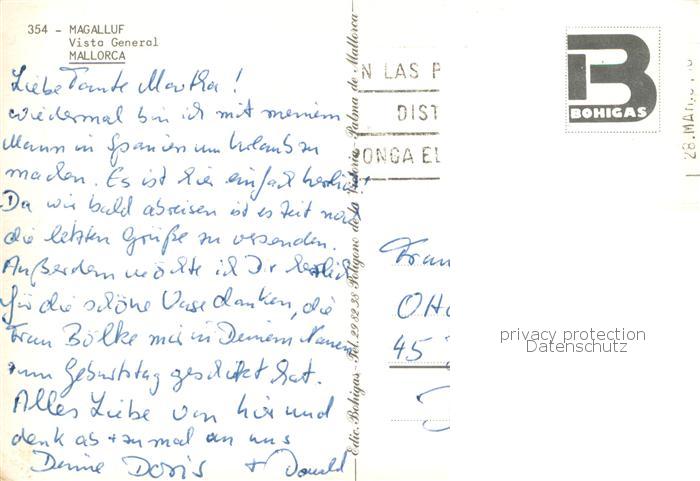 354 - MAGALLUF
Vista General
MALLORCA
Liebe Tante Martha!
wiedermal bin ich mit meinem
Mann in Spanien um Urlaub zu
machen. Es ist hier einfach herrlich
Da wir bald abreisen ist es Zeit noch
die letzten Grüße zu versenden.
Außerdem möchte ich Dir herzlich
für die schöne Vase danken, die
Frau Bölke mir in Deinem Namen
zum Geburtstag geschickt hat.
Alles Liebe von hier und
denk ab + zu mal an uns
Deine Doris + Donald
Edic. Bohigas - Tel. 29 02 38 Poligono de la Victoria - Palma de Mallorca
N LAS P
DIST
ONGA EL
B
BOHIGAS
28.MAR
Frau
OHo
45
privacy protection
Datenschutz